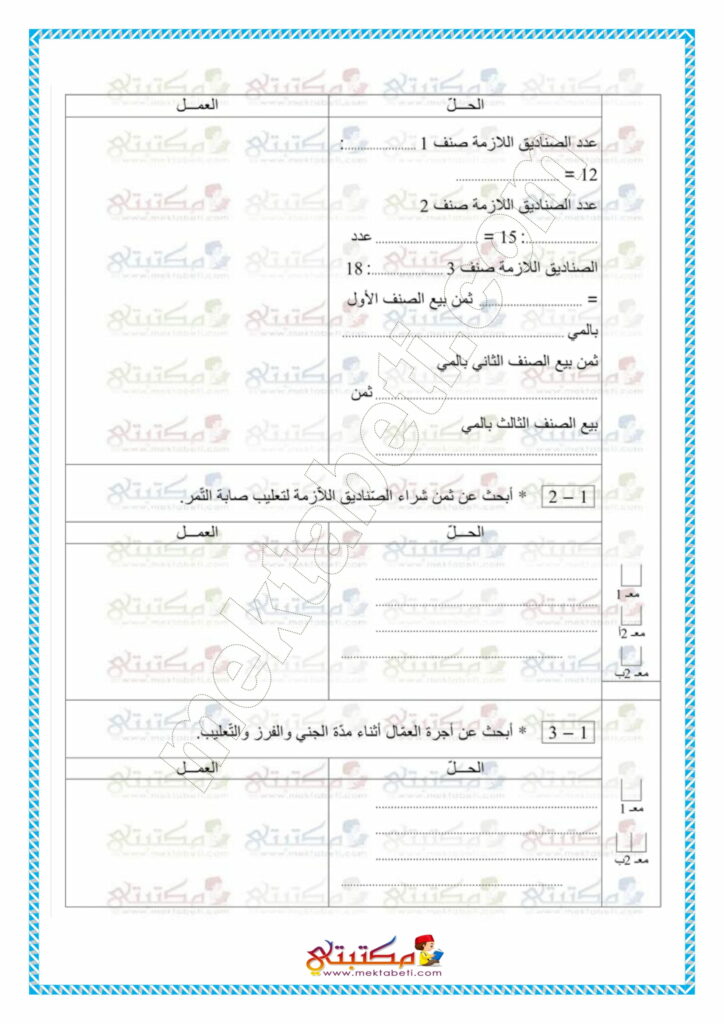 الحـــلّ العمـــل
عدد الصناديق اللازمة صنف 1 ...................:
12 = ............................
عدد الصناديق اللازمة صنف 2
....................: 15 = ............................ عدد
الصناديق اللازمة صنف 3 ...................: 18
= ............................ ثمن بيع الصنف الأول
بالمي ............................................................
ثمن بيع الصنف الثاني بالمي
............................................................ ثمن
بيع الصنف الثالث بالمي
............................................................
1 – 2 * أبحث عن ثمن شراء الصّناديق اللاّزمة لتعليب صابة التّمر.
الحـــلّ العمـــل
............................................................
معـ 1
............................................................
............................................................
معـ 2أ
............................................................
معـ 2ب
1 – 3 * أبحث عن أجرة العمّال أثناء مدّة الجني والفرز والتّعليب.
الحـــلّ العمـــل
............................................................
معـ 1
............................................................
............................................................
معـ 2ب
............................................................
مكتبتي
www.mektabeti.com
mektabeti.com